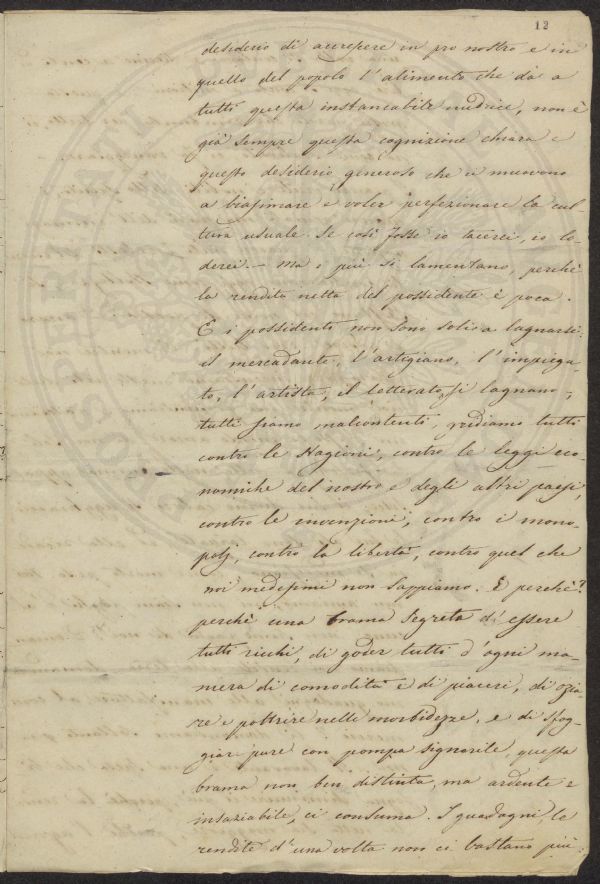 12
desiderio di accrescere in pro nostro e in
quello del popolo l'alimento che dà a
tutti questa instancabile nudrice, non è
già sempre questa cognizione chiara e
questo desiderio generoso che ci muovono
a biasimare e voler perfezionare la cul-
tura usuale. Se così fosse io tacerei, io lo-
derei. — Ma i più si lamentano, perchè
la rendita netta del possidente è poca.
E i possidenti non sono soli a lagnarsi:
il mercadante, l'artigiano, l'impiega-
to, l'artista, il letterato, si lagnano;
tutti siamo malcontenti, gridiamo tutti
contro le stagioni, contro le leggi eco-
nomiche del nostro e degli altri paesi,
contro le invenzioni, contro i mono-
polj, contro la libertà, contro quel che
noi medesimi non sappiamo. E perchè?
perchè una brama segreta d'essere
tutti ricchi, di goder tutti d'ogni ma-
niera di comodità e di piaceri, di ozia-
re e poltrire nelle morbidezze, e di sfog-
giar pure con pompa signorile, questa
brama non ben distinta, ma ardente e
insaziabile, ci consuma. I guadagni, le
rendite d'una volta non ci bastano più: